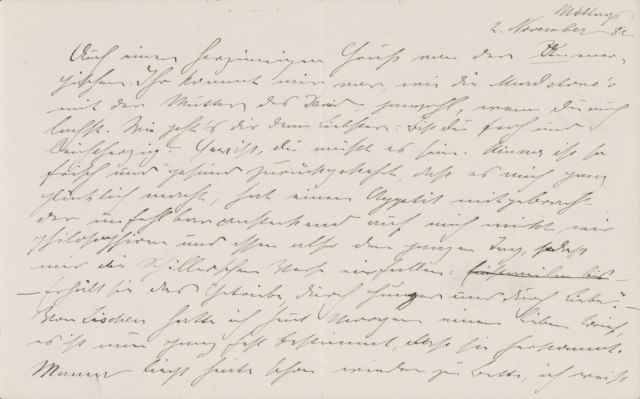 Mittwoch
2. November 82
Auch einen herzinnigen Gruß von der
Ihr kommt mir vor, wie die Murdstone's
mit der Mutter des David wenn du auch
lachst. Wie geht's dir denn Liebster: bist du froh und
Gewiß, du mußt es sein. Minna ist so
frisch und gesund zurückgekehrt, daß es mich ganz
glücklich macht, hat einen Appetit mitgebracht
der unfehlbar ansteckend auf mich wirkt, wir
philosophieren und essen also den ganzen Tag, sodaß
mir die Schiller'schen Verse einfallen:
Erhält sie das Getriebe durch Hunger und durch Liebe."
Von Lieschen hatte ich heut Morgen einen lieben Brief,
es ist nun ganz fest bestimmt, daß sie herkommt.
Mama liegt heute schon wieder zu Bette, ich weiß